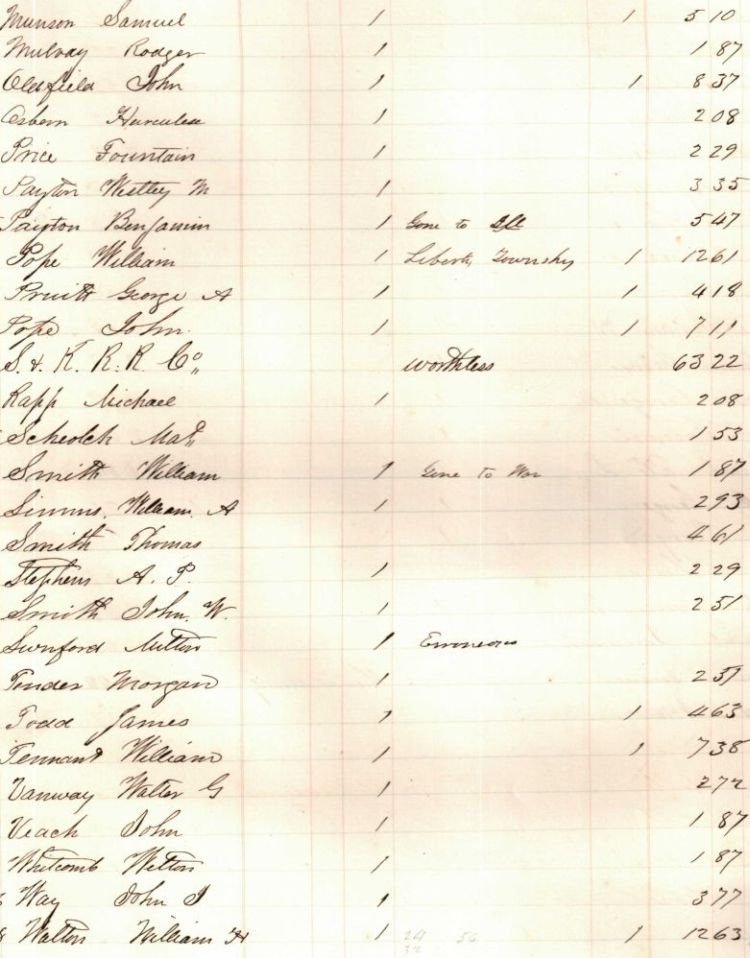 Munson Samuel 1 1 5 10
Mulvay Rodger 1 1 87
Oldfield John 1 1 8 37
Osborn Hercules 1 2 08
Price Fountain 1 2 29
Payton Westley M 1 3 35
Payton Benjamin 1 Gone to 5 47
Pope William 1 Liberty Township 1 12 61
Pruitt George A 1 1 4 18
Pope John 1 1 7 11
S. & K. R. R. Co,, worthless 63 22
Rapp Michael 1 2 08
Scheolch Mat,, 1 53
Smith William 1 Gone to War 1 87
Simms, William A 1 2 93
Smith Thomas 4 61
Stephens A. P. 1 2 29
Smith John. W. 1 2 51
Milton 1 Erroneous
Morgan 1 2 51
Todd James 1 1 4 63
Tennant William 1 1 7 38
Vanway Walter G 1 2 72
Veach John 1 1 87
Whitcomb Welton 1 1 87
Way John J 1 3 77
8 Walton William H 1 24 56 1 12 63
32